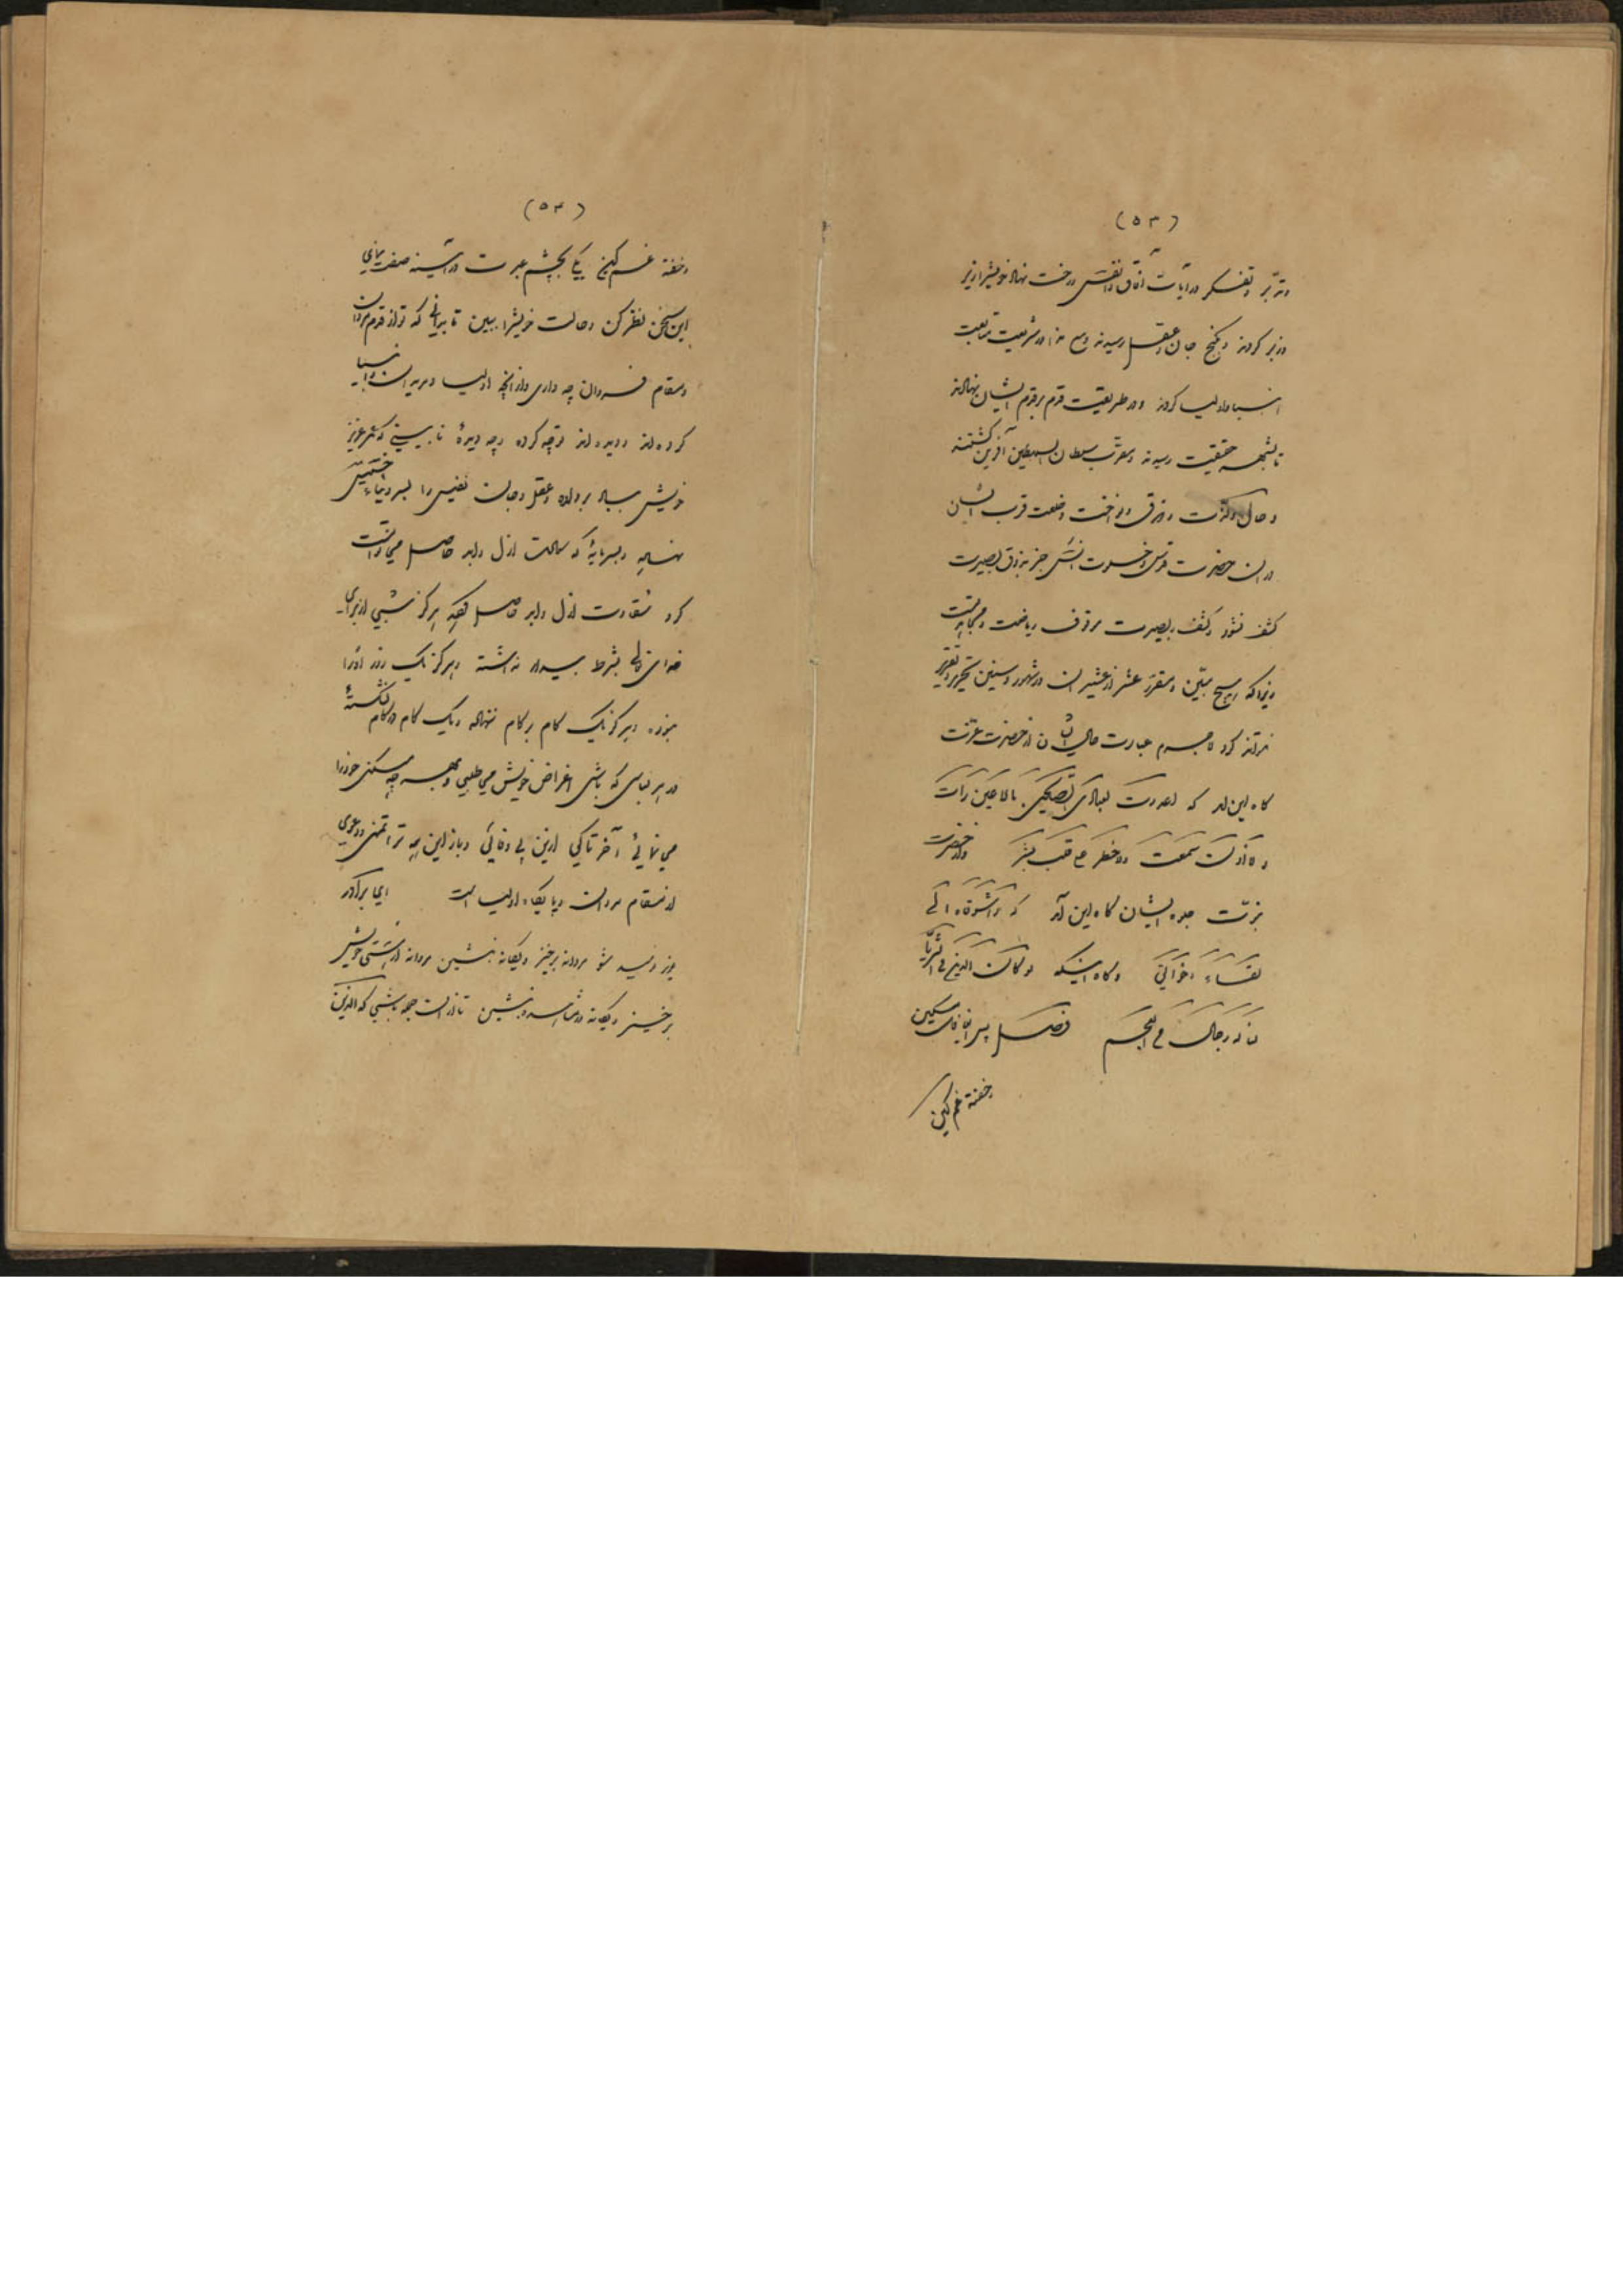 (۵۳)
و تدبّر و تفکر در آیات آفاق و انفس درخت نهاد خویش را زیر
و زبر کردند و بکنج جان و عقل رسیدند و در شریعت متابعت
انبیا و اولیا کردند و در طریقت قدم بر قدم ایشان نهادند
تا بشهر حقیقت رسیدند و مقرّب سلطان السلاطین آفرین کشتند
و حال و ذوق و نواخت و خلعت قرب ایشان
در ان حضرت قدس و خلوت انس جز بذوق بصیرت
کشف نشود و کشف بصیرت موقوف ریاضت و مجاهدتست
و چنانکه هیچ مبیّن و مقرّر عشر از عشیر ان در شهور و سنین تحریر و تقریر
نتواند کرد لاجرم عبارت حال ایشان از حضرت عزّت
کاه این امد که اعددت لعبادی الصالحین ما لا عین رأت
و لا اذن سمعت و لا خطر علی قلب بشر و از حضرت
نبوّت جلوه ایشان کاه این آمد که واشوقاه الی
لقاء اخوانی و کاه اینکه لو کان الدین فی الثریّا
لناله رجال من العجم فصل پس ای غافل مسکین
خفته غم کین
(۵۴)
و خفته غم کین یکی بچشم عبرت در آیینه صفت نمای
این سخن نظر کن و حالت خویش را ببین تا بدانی که تو از قدم مردان
و مقام فردان چه داری و از آنچه اولیا و مریدان و انبیا
کرده اند و دیده اند تو چه کرده و چه دیدهٔ تا ببینی که عمر عزیز
خویش بباد بر داده و عقل و جان نفیس را بسر دنیاء خسیس
نهاده و بسرمایهٔ که سعادت ازل و ابد حاصل می توانست
کرد شقاوت ازل و ابد حاصل کردهٔ هرکز شبی از برای
خدای تعالی بشرط بیدار نداشته و هرکز یک روز او را
نبوده و هرکز یک کام بر کام ننهاده و یک کام در کام نشکستهٔ
در هر لباسی که باشی اغراض خویش می طلبی و بهر چه میکنی خود را
می نمائی آخر تا کی ازین بی وفائی و باز این همه ترا تمنی و دعوی
از مقام مردان و پایکاه اولیا است ای برادر
نومید مشو مردانه برخیز و یکانه بنشین مردانه از هستی خویش
برخیز و یکانه در بنشین تا از ان جمله باشی که الذین